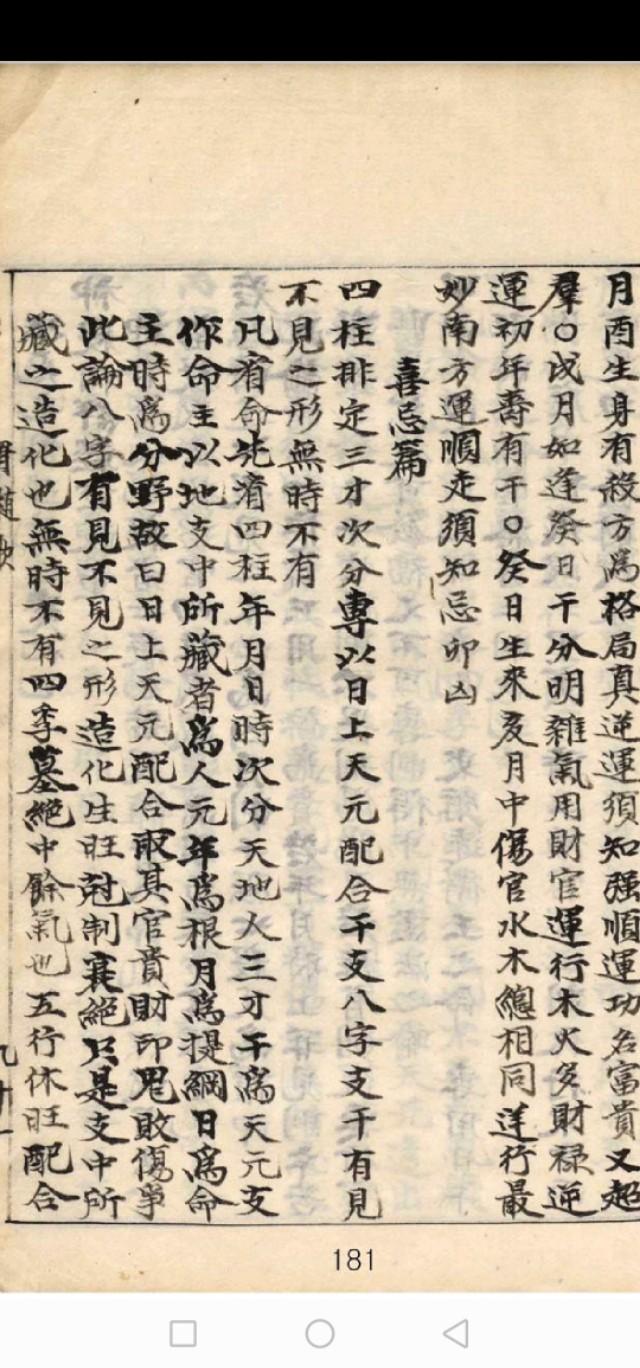 月酉生身有殺方爲格局真逆運須知强順運功名富貴又超
羣○戌月如逢癸日干分明雜氣用財官運行木火多財祿逆
運初年壽有干○癸日生來亥月中傷官水木總相同逆行最
妙南方運順走須知忌卯凶
喜忌篇
四柱排定三才次分專以日上天元配合干支八字支干有見
不見之形無時不有
凡看命先淯四柱年月日時次分天地人三才干爲天元支
作命主以地支中所藏者爲人元年爲根月爲提綱日爲命
主時爲分野故曰日上天元配合取其官貴財印鬼敗傷事
此論八字有見不見之形造化生旺尅制衰絕只是支中所
藏之造化也無時不有四季墓絕中餘氣也五行休旺配合
181